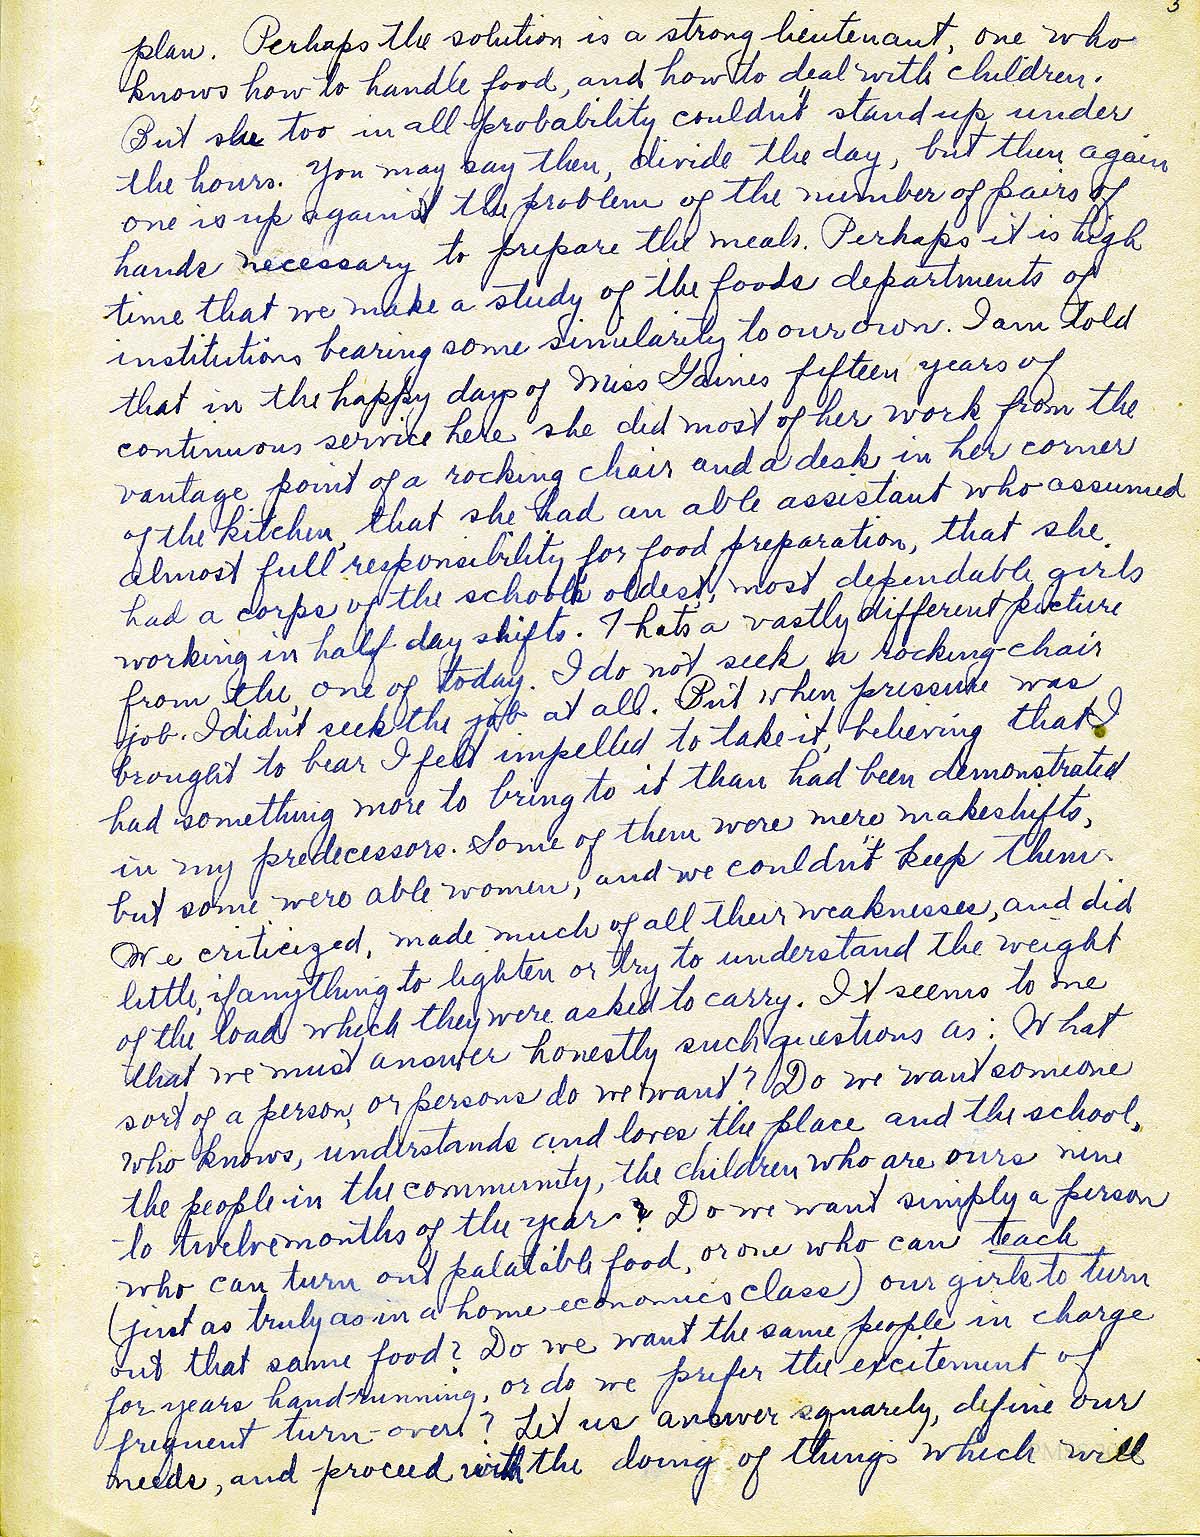 3
plan. Perhaps the solution is a strong lieutenant, one who
knows how to handle food, and how to deal with children.
But she too in all probability couldn't stand up under
the hours. You may say then, divide the day, but then again
one is up against the problem of the number of pairs of
hands necessary to prepare the meals. Perhaps it is high
time that we make a study of the foods departments of
institutions bearing some simularity to our own. I am told
that in the happy days of Miss Gaines fifteen years of
continuous service here she did most of her work from the
vantage point of a rocking chair and a desk in her corner
of the kitchen, that she had an able assistant who assumed
almost full responsibility for food preparation, that she
had a corps of the school's oldest, most dependable girls
working in half day shifts. Thats a vastly different picture
from the one of today. I do not seek a rocking-chair
job. I didn't seek the job at all. But when pressure was
brought to bear I felt impelled to take it, believing that I
had something more to bring to it than had been demonstrated
in my predecessors. Some of them were mere makeshifts,
but some were able women, and we couldn't keep them.
We criticized, made much of all their weaknesses, and did
little, if anything to lighten or try to understand the weight
of the load which they were asked to carry. It seems to me
that we must answer honestly such questions as: What
sort of a person, or persons do we want? Do we want someone
who knows, understands and loves the place and the school,
the people in the community, the children who are ours nine
to twelve months of the year? Do we want simply a person
who can turn out palatable food, or one who can teach
(just as truly as in a home economics class) our girls to turn
out that same food? Do we want the same people in charge
for years hand-running, or do we prefer the excitement of
frequent turn-over? Let us answer squarely, define our
needs, and proceed with the doing of things which will